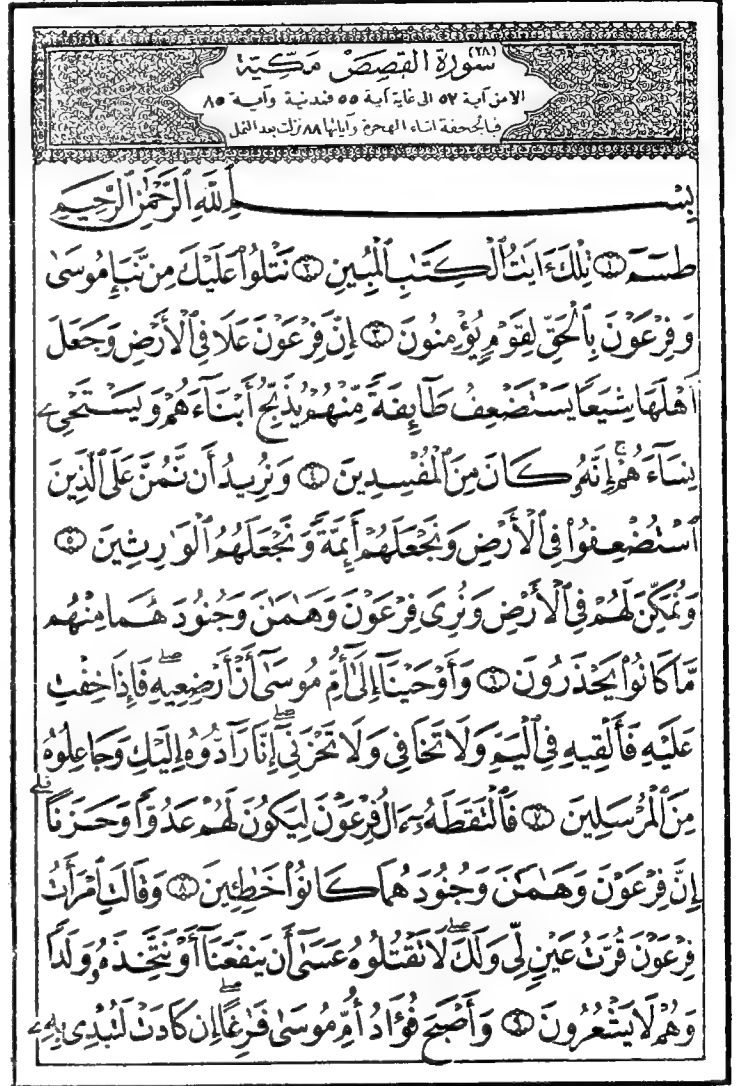 (٢٨) سورة القصص مكية
الا من آية ٥٢ الى غاية آية ٥٥ فمدنية وآية ٨٥
فبالجحفة أثناء الهجرة وآياتها ٨٨ نزلت بعد النمل
بِسْمِ ٱللَّهِ ٱلرَّحْمَٰنِ ٱلرَّحِيمِ
طسٓمٓ ١ تِلْكَ ءَايَٰتُ ٱلْكِتَٰبِ ٱلْمُبِينِ ٢ نَتْلُوا۟ عَلَيْكَ مِن نَّبَإِ مُوسَىٰ
وَفِرْعَوْنَ بِٱلْحَقِّ لِقَوْمٍ يُؤْمِنُونَ ٣ إِنَّ فِرْعَوْنَ عَلَا فِى ٱلْأَرْضِ وَجَعَلَ
أَهْلَهَا شِيَعًا يَسْتَضْعِفُ طَآئِفَةً مِّنْهُمْ يُذَبِّحُ أَبْنَآءَهُمْ وَيَسْتَحْىِۦ
نِسَآءَهُمْ ۚ إِنَّهُۥ كَانَ مِنَ ٱلْمُفْسِدِينَ ٤ وَنُرِيدُ أَن نَّمُنَّ عَلَى ٱلَّذِينَ
ٱسْتُضْعِفُوا۟ فِى ٱلْأَرْضِ وَنَجْعَلَهُمْ أَئِمَّةً وَنَجْعَلَهُمُ ٱلْوَٰرِثِينَ ٥
وَنُمَكِّنَ لَهُمْ فِى ٱلْأَرْضِ وَنُرِىَ فِرْعَوْنَ وَهَٰمَٰنَ وَجُنُودَهُمَا مِنْهُم
مَّا كَانُوا۟ يَحْذَرُونَ ٦ وَأَوْحَيْنَآ إِلَىٰٓ أُمِّ مُوسَىٰٓ أَنْ أَرْضِعِيهِ ۖ فَإِذَا خِفْتِ
عَلَيْهِ فَأَلْقِيهِ فِى ٱلْيَمِّ وَلَا تَخَافِى وَلَا تَحْزَنِىٓ ۖ إِنَّا رَآدُّوهُ إِلَيْكِ وَجَاعِلُوهُ
مِنَ ٱلْمُرْسَلِينَ ٧ فَٱلْتَقَطَهُۥٓ ءَالُ فِرْعَوْنَ لِيَكُونَ لَهُمْ عَدُوًّا وَحَزَنًا ۗ
إِنَّ فِرْعَوْنَ وَهَٰمَٰنَ وَجُنُودَهُمَا كَانُوا۟ خَٰطِـِٔينَ ٨ وَقَالَتِ ٱمْرَأَتُ
فِرْعَوْنَ قُرَّتُ عَيْنٍ لِّى وَلَكَ ۖ لَا تَقْتُلُوهُ عَسَىٰٓ أَن يَنفَعَنَآ أَوْ نَتَّخِذَهُۥ وَلَدًا
وَهُمْ لَا يَشْعُرُونَ ٩ وَأَصْبَحَ فُؤَادُ أُمِّ مُوسَىٰ فَٰرِغًا ۖ إِن كَادَتْ لَتُبْدِى بِهِۦ